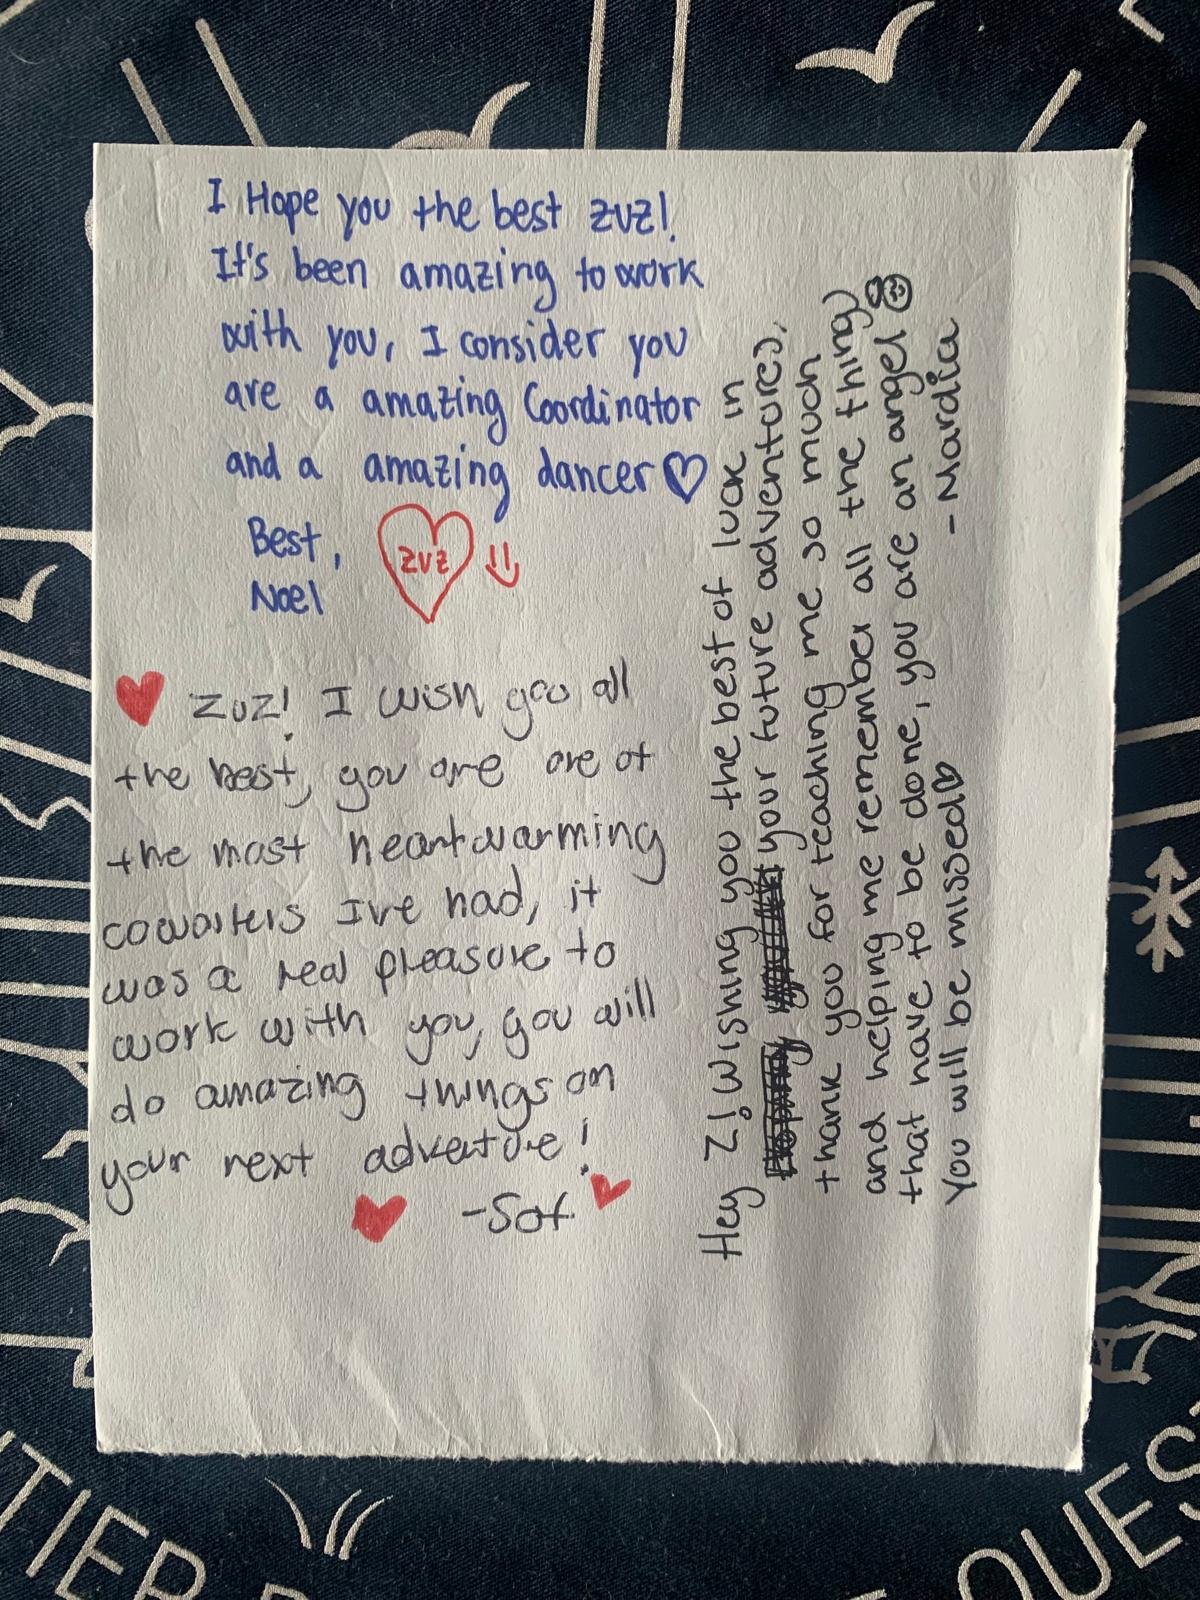 I Hope you the best zuz!
It's been amazing to work
with you, I consider you
are a amazing Coordinator
and a amazing dancer♡
Best,
Noel
zuz
♥ ZUZ! I wish you all
the best, you are one of
the most heartwarming
coworkers I've had, it
was a real pleasure to
work with you, you will
do amazing things on
your next adventure!
-Sof
Hey Z! Wishing you the best of luck in
your future adventures,
thank you for teaching me so much
and helping me remember all the things
that have to be done, you are an angel
You will be missed♡ -Mardia
TIER
QUES